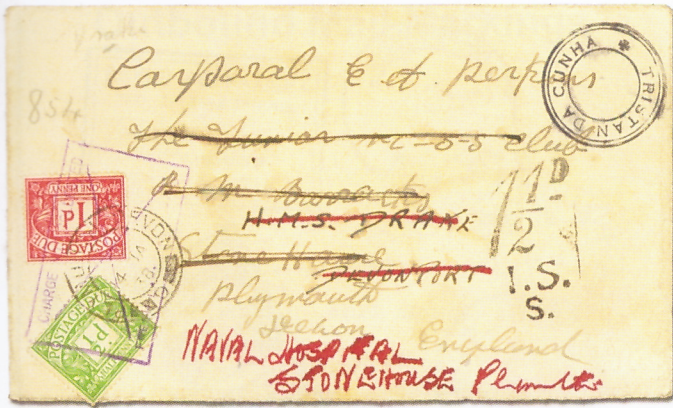 854
Corporal E A Perkins
The Junior N.C.O.S Club
R M Barracks
H.M.S. DRAKE
Stone House
DEVONPORT
Plymouth
Devon England
NAVAL HOSPITAL
STONEHOUSE Plymouth
TRISTAN DA CUNHA
1 1/2 D
I.S.
S.
POSTAGE DUE
1d
ONE PENNY
POSTAGE DUE
CHARGE